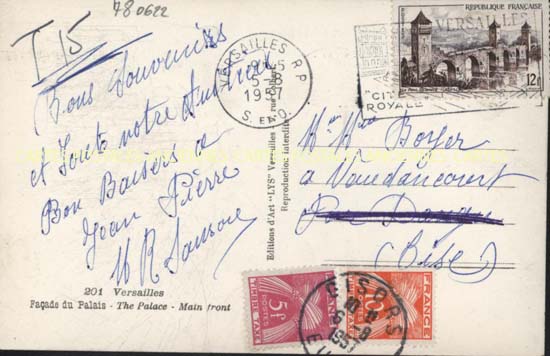 780622
T 15
Bons Souvenirs
et toute notre Amitié
Bon Baisers a
Jean Pierre
201 Versailles
Façade du Palais - The Palace - Main front
Editions d'Art "LYS" Versailles -
Reproduction interdite
VERSAILLES R.P.
5-8
1957
S. ET O.
VERSAILLES
CITÉ
ROYALE
RÉPUBLIQUE FRANÇAISE
12f
POSTES
Mr Mme Boyer
a Vaudancourt
(Oise)
5F
FRANCE
TIMBRE TAXE
FRANCE
GISORS